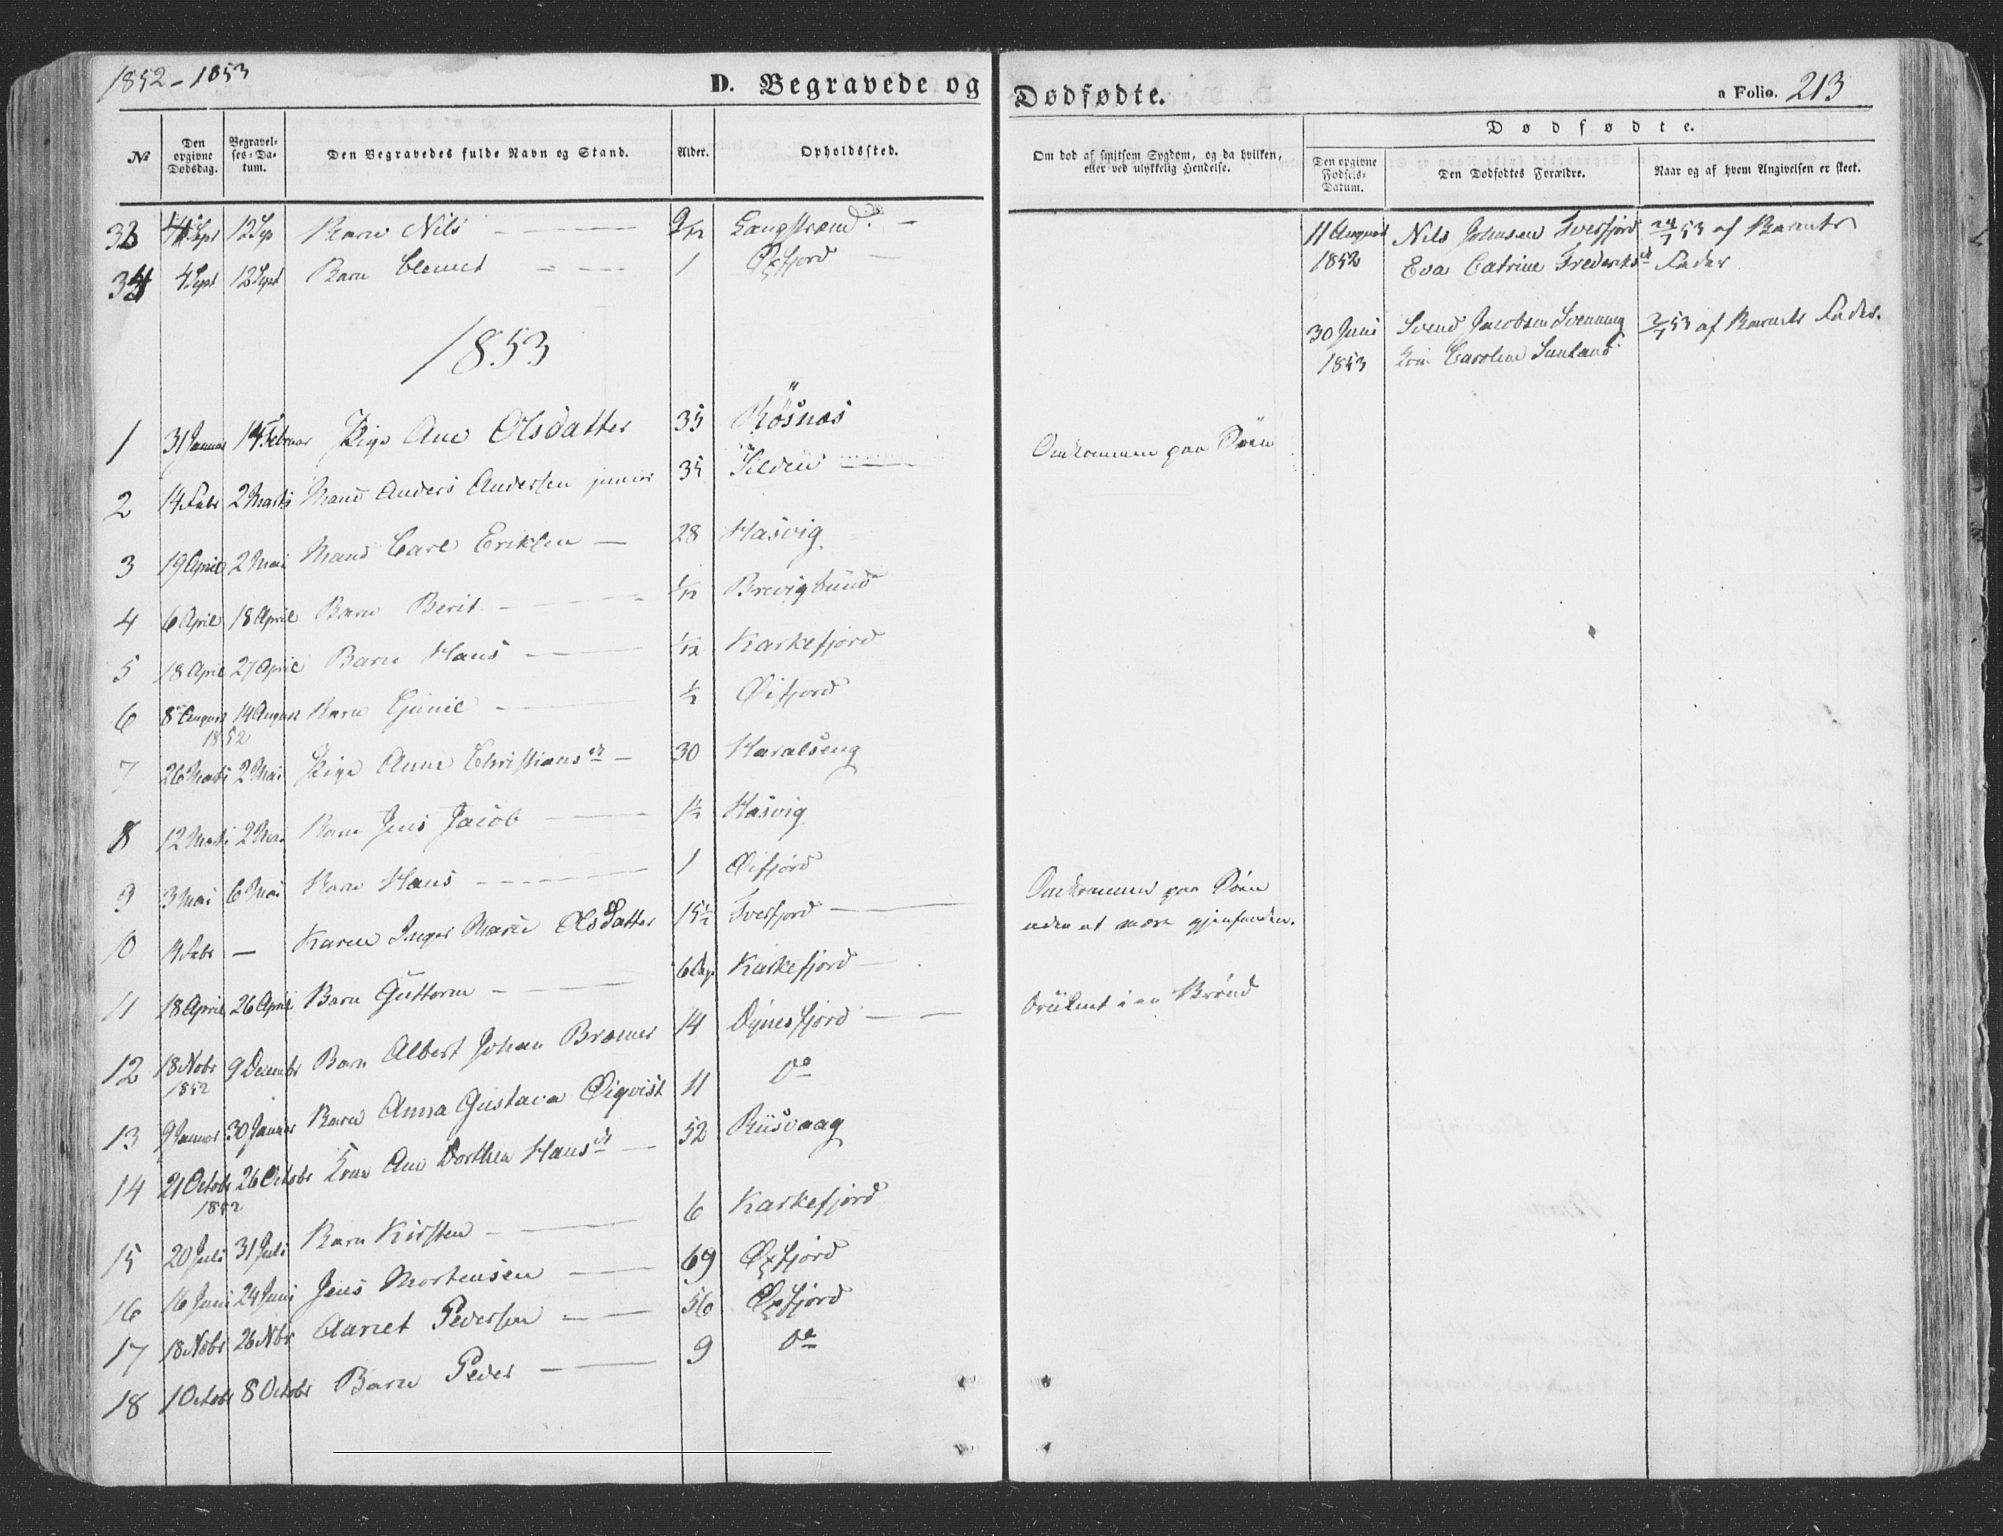 1852-1853
D. Begravede og Dødfødte.
a Folio. 213
No
Den opgivne Dødsdag.
Begravelses-Datum.
Den Begravedes fulde Navn og Stand.
Alder.
Opholdssted.
Om død af smitsom Sygdom, og da hvilken, eller ved ulykkelig Hendelse.
Dødfødte.
Den opgivne Fødsels-Datum.
Den Dødfødtes Forældre.
Naar og af hvem Angivelsen er skeet.
33 12 Sp Barn Nils 9/12 Langstrand
34 4 Sept 12 Sept Barn Clemet 1 Øxfjord
11 August 1852 Nils Johnsen Tverfjord
Eva Catrine Frederiksd
24/7 53 af Barnets Fader
30 Juni 1853 Svend Jacobsen Svenning
Kon Caroline
2/7 53 af Barnets Fader.
1853
1 31 Januar 14 Februar Pige Ane Olsdatter 35 Røsnæs
2 14 Febr 2 Marts Mand Anders Andersen junior 35 Silden Omkommen paa Søen
3 19 April 2 Mai Mand Carl Eriksen 28 Hasvig
4 6 April 18 April Barn Berit 1/12 Brevigsund
5 18 April 27 April Barn Hans 1/12 Karkefjord
6 8 August 14 August Barn Gunil 1/2 Øifjord
1852
7 26 Marts 2 Mai Pige Anne Christiansd 30 Haralseng
8 12 Marts 2 Mai Barn Jens Jacob 1½ Hasvig
9 3 Mai 6 Mai Barn Hans 1 Øifjord
10 14 Febr — Karen Inger Marie Olsdatter 15½ Tverfjord Omkommen paa Søen
uden at være gjenfunden.
11 18 April 26 April Barn Guttorm 6 Dag Karkefjord
12 18 Nobr 1852 9 Decembr Barn Albert Johan Bræmer 14 Dynesfjord Druknet i en Brønd
13 9 Januar 30 Januar Barn Anna Gustava Øiqvist 11 do
14 21 Octobr 1852 26 Octobr Kone Ane Dorthea Hansd 52 Riisvaag
15 20 Juli 31 Juli Barn Kirsten 6 Karkefjord
16 16 Juni 24 Juni Jens Mortensen 69 Øxfjord
17 18 Nobr 26 Nbr Aanet Pedersen 56 Øxfjord
18 1 Octobr 8 Octobr Barn Peder 9 do